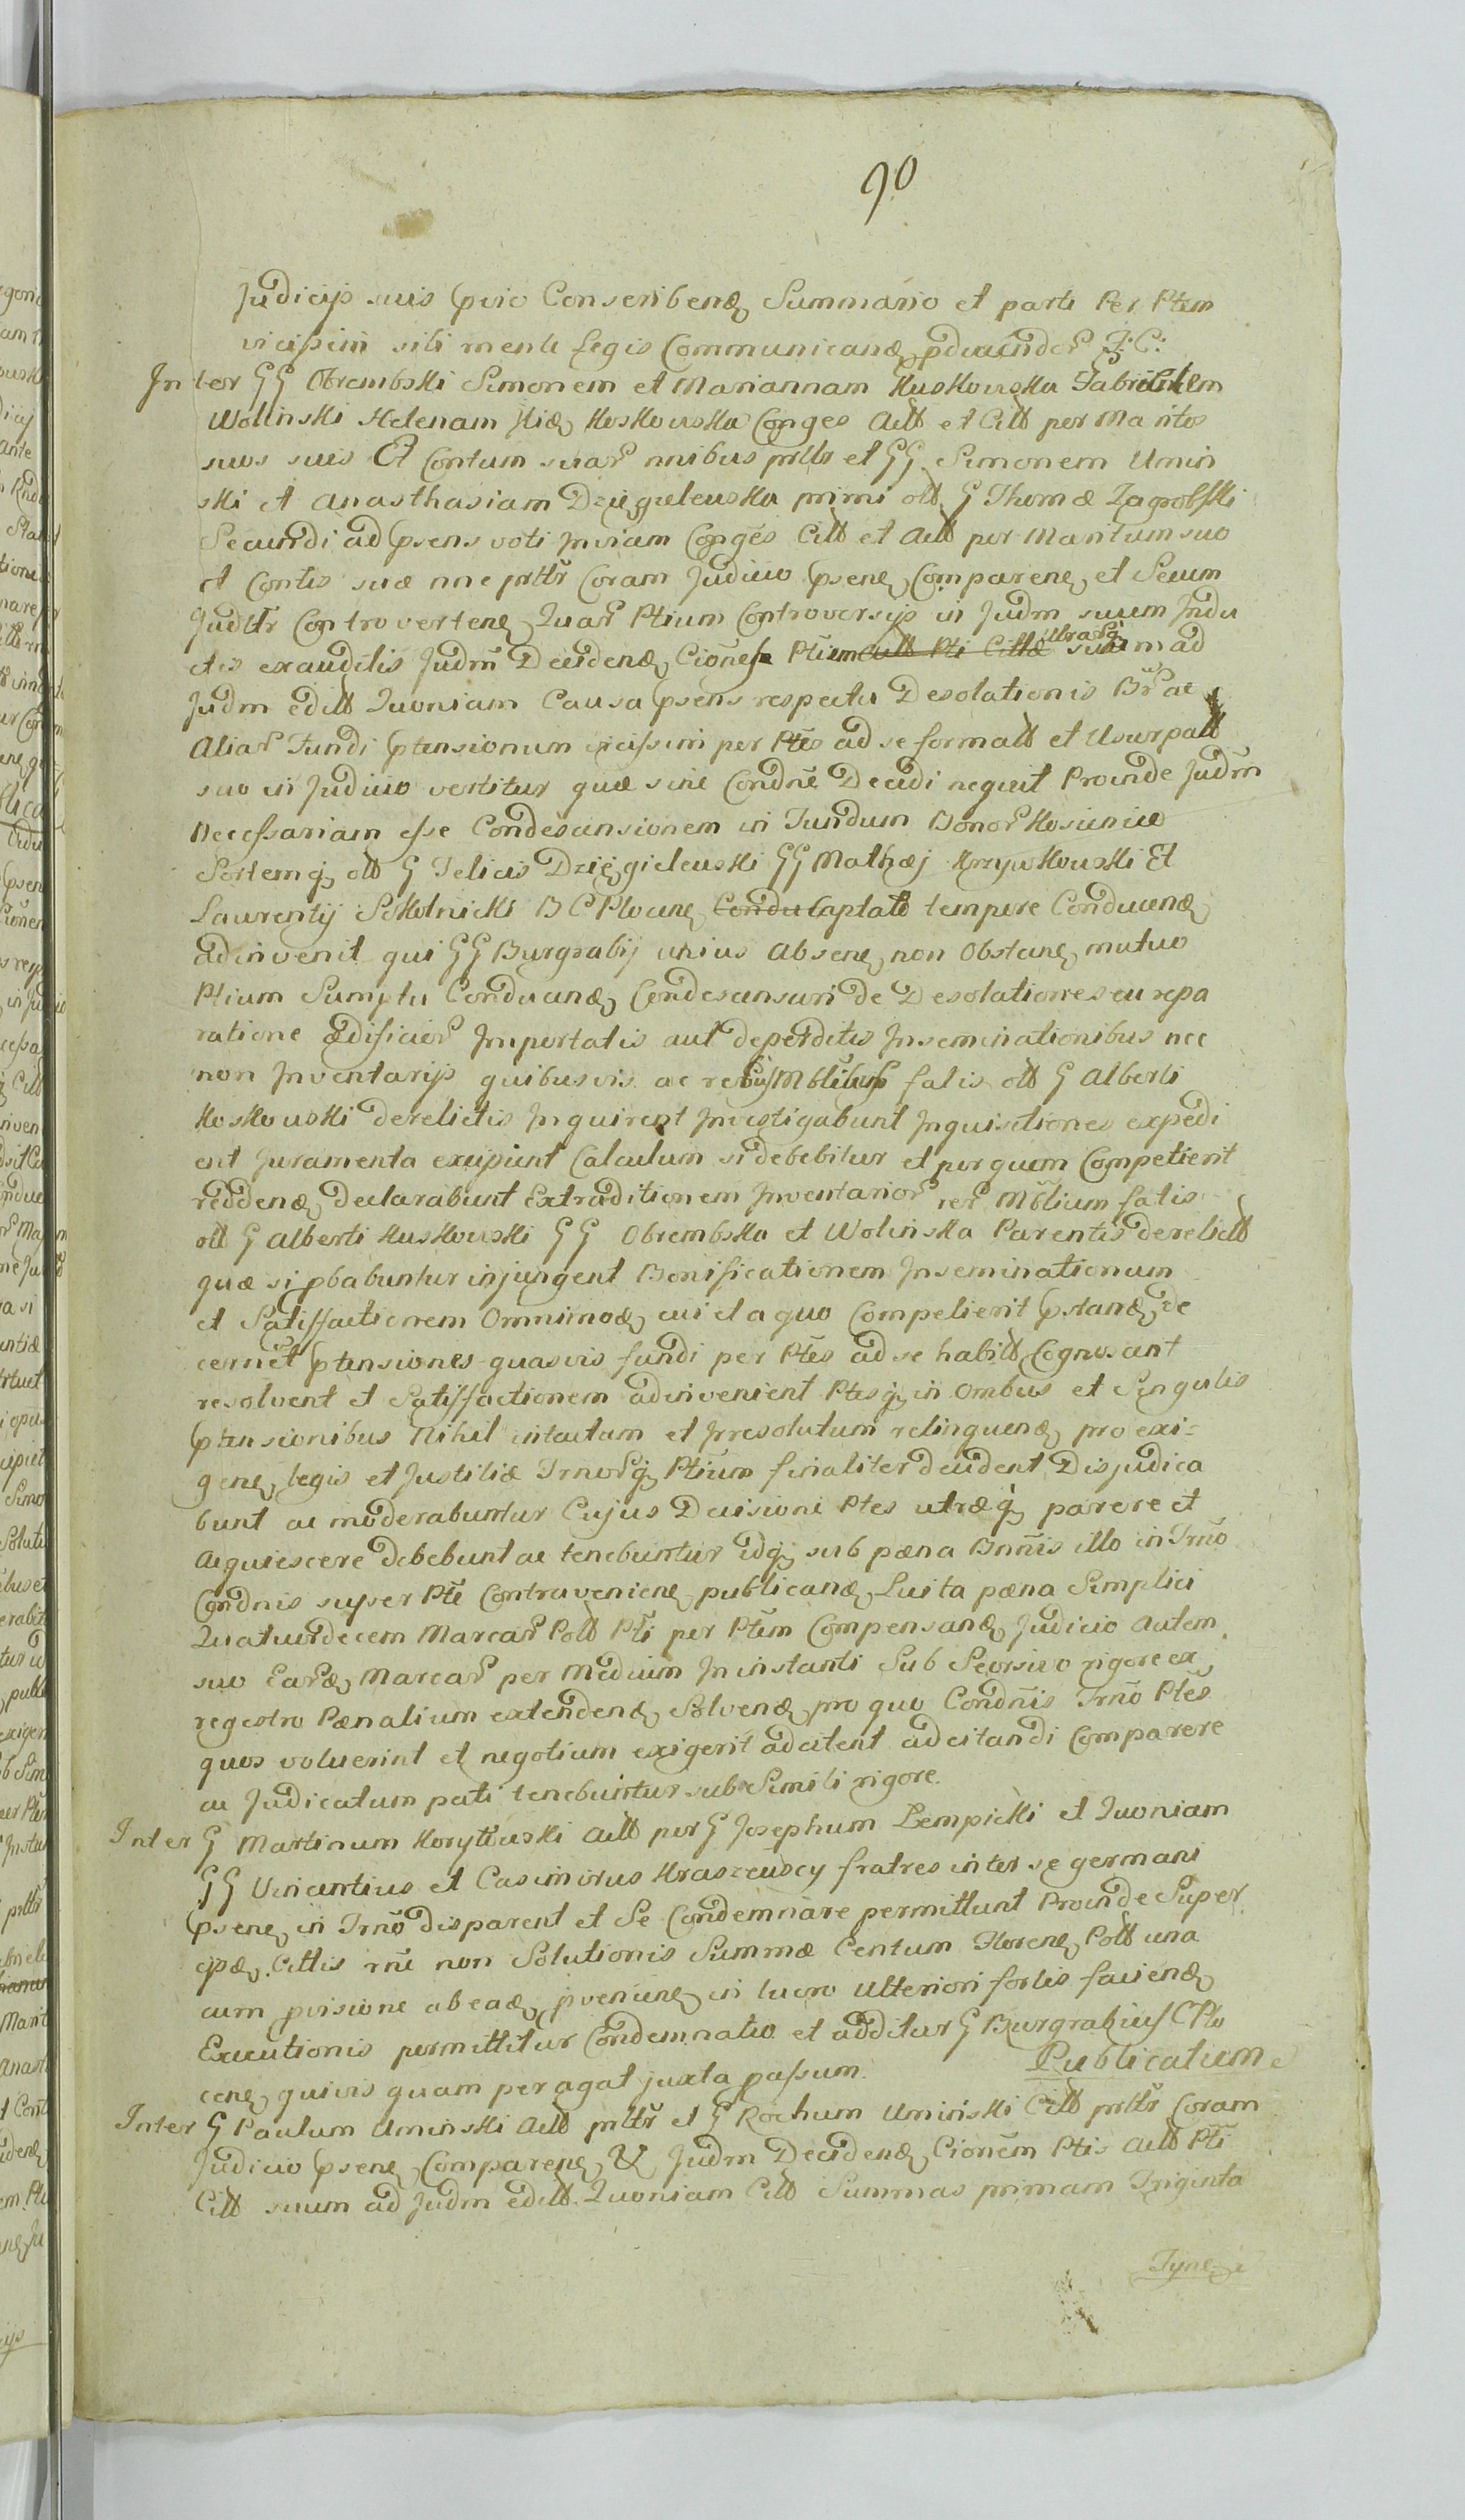 90
Judicijs suis pvio Conscribend Summario et parti Per Ptem
vicissim sibi mente Legis Communicand
Inter GG Obrembski Simonem et Mariannam Kuskowska Gabrielem
Wolinski Helenam Koskowska Conges Actt et Citt per Maritos
suos suis Et Contum suar nnibus prttr et GG Simonem Umin
ski et Anasthasiam Dzięgielewska primi olt G Thomæ Zagrobski
Secundi ad psens voti Inviam Conges Citt et Actt per Maritum suo
et Contis suæ nne prttr Coram Judicio psene Comparene et Secum
Juditr Controvertene Quar Ptium Controversijs in Judm suum Indu
ctis exauditis Judm Decidend Cionesq Ptium Actt Pti Cittæ utrasq suam ad
Judm editt Quoniam Causa psens respectu Desolationis Br ac
Aliar Fundi ptensionum vicissim per Ptes ad se formatt et Usurpatt
suo in Judicio vertitur quæ sine Condne Decidi nequit Proinde Judm
Necessariam esse Condescensionem in Fundum Bonor
Sortemq olt G Felicis Dzięgielewski GG Mathæj Krzywkowski Et
Laurentij Sokolnicki B C Plocene Condu Captato tempore Conducend
adinvenit qui GG Burgrabij unius Absene non Obstane mutuo
Ptium Sumptu Conducend Condescensuri de Desolatione seu repa
ratione ædificior Importatis aut deperditis Inseminationibus nec
non Inventarijs quibusvis ac rebus Mbtibus fatis olt G Alberti
Koskowski derelictis Inquirent Investigabunt Inquisitiones expedi
ent Juramenta excipient Calculum si debebitur et per quem Competierit
reddend declarabunt Extraditionem Inventarior rer Mbtium fatis
olt G Alberti Kuskowski GG Obrembska et Wolinska Parentis derelictt
quæ si pbabuntur injungent Bonificationem Inseminationum
et Satisfactionem Omnimod cui et a quo Competierit pstand de
cernet ptensiones quasvis fundi per Ptes ad se habitt Cognoscant
resolvent et Satisfactionem adinvenient Ptesq in Ombus et Singulis
ptensionibus Nihil intactum et Irresolutum relinquend pro exi=
gene legis et Justitiæ Trnosq Ptium finaliter decident Disjudica
bunt ac moderabuntur Cujus Decisioni Ptes utræq parere et
Acquiescere debebunt ac tenebuntur idq sub pæna Bnnis illo in Trno
Condnis super Pte Contraveniene publicand Luita pæna Simplici
Quatuordecem Marcar Polt Pti per Ptem Compensand Judicio Autem
suo Eard Marcar per Medium In instanti Sub Seorsivo rigore ex
regestro Pænalium extendend Solvend pro quo Condnis Trno Ptes
quos voluerint et negotium exigerit adcitent adcitandi Comparere
ac Judicatum pati tenebuntur sub Simili rigore.
Inter G Martinum Korytowski Actt per G Josephum Lempicki et Quoniam
GG Vincentius et Casimirus Kraszewscy fratres inter se germani
psene in Trno disparent et Se Condemnare permittunt Proinde Super
ipsd Cittis rne non Solutionis Summæ Centum Florene Polt una
cum pvisione ab ead pveniene in lucro Ulteriori fortis faciend
Executionis permittitur Condemnatio et additur G Burgrabius C Plo
cene quivis quam peragat juxta passum. Publicatum
Inter G Paulum Uminski Actt prttr et G Rochum Uminski Citt prttr Coram
Judicio psene Comparene & Judm Decidend Cionem Ptis Actt Pti
Citt suum ad Judm editt Quoniam Citt Summas primam Triginta